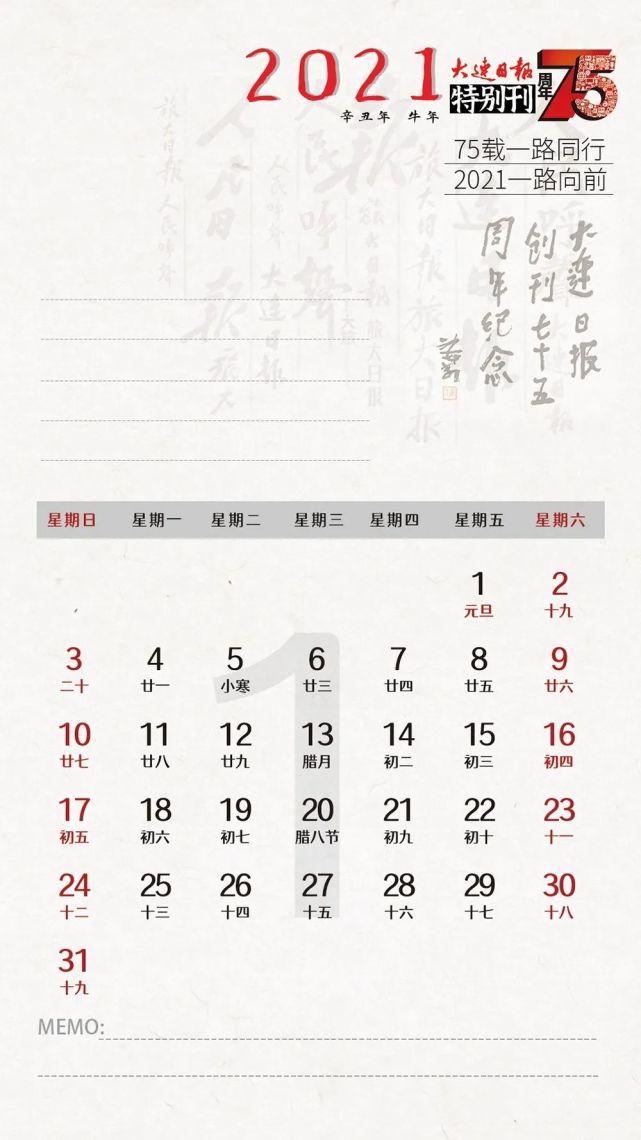 2021
辛丑年 牛年
大连日报
特别刊
75
周年
75载一路同行
2021一路向前
大连日报
创刊七十五
周年纪念
星期日 星期一 星期二 星期三 星期四 星期五 星期六
1 2
元旦 十九
3 4 5 6 7 8 9
二十 廿一 小寒 廿三 廿四 廿五 廿六
10 11 12 13 14 15 16
廿七 廿八 廿九 腊月 初二 初三 初四
17 18 19 20 21 22 23
初五 初六 初七 腊八节 初九 初十 十一
24 25 26 27 28 29 30
十二 十三 十四 十五 十六 十七 十八
31
十九
1
MEMO: